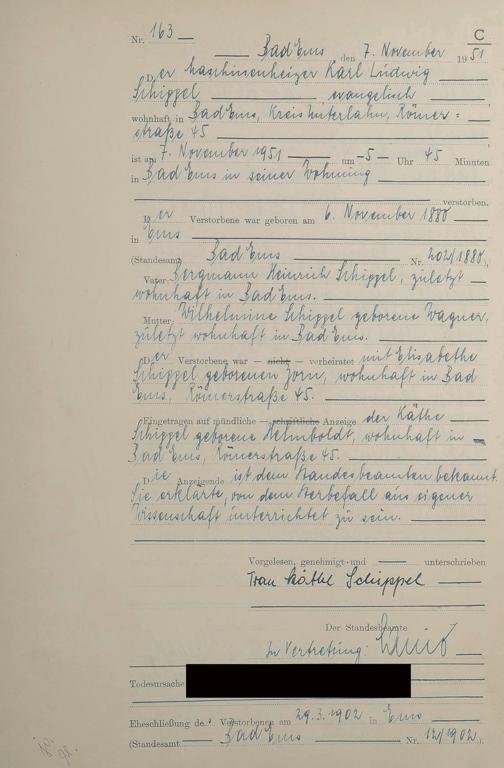 C
Nr. 163
Bad Ems, den 7. November 1951
Der Maschinenheizer Karl Ludwig
Schippel evangelisch
wohnhaft in Bad Ems, Kreis Unterlahn, Römer=
straße 45
ist am 7. November 1951 um 5 Uhr 45 Minuten
in Bad Ems in seiner Wohnung
verstorben.
Der Verstorbene war geboren am 6. November 1880
in Ems
(Standesamt Bad Ems Nr. 202/1880),
Vater: Bergmann Heinrich Schippel, zuletzt
wohnhaft in Bad Ems.
Mutter: Wilhelmine Schippel geborene Wagner,
zuletzt wohnhaft in Bad Ems.
Der Verstorbene war — nicht — verheiratet mit Elisabethe
Schippel geborenen Zorn, wohnhaft in Bad
Ems, Römerstraße 45.
Eingetragen auf mündliche — schriftliche — Anzeige der Käthe
Schippel geborene Helmboldt, wohnhaft in
Bad Ems, Römerstraße 45.
Die Anzeigende ist dem Standesbeamten bekannt.
Sie erklärte, von dem Sterbefall aus eigener
Wissenschaft unterrichtet zu sein.
Vorgelesen, genehmigt und unterschrieben
Frau Käthe Schippel
Der Standesbeamte
In Vertretung:
Todesursache
Eheschließung des Verstorbenen am 29.3.1902 in Ems
(Standesamt Bad Ems Nr. 12/1902).